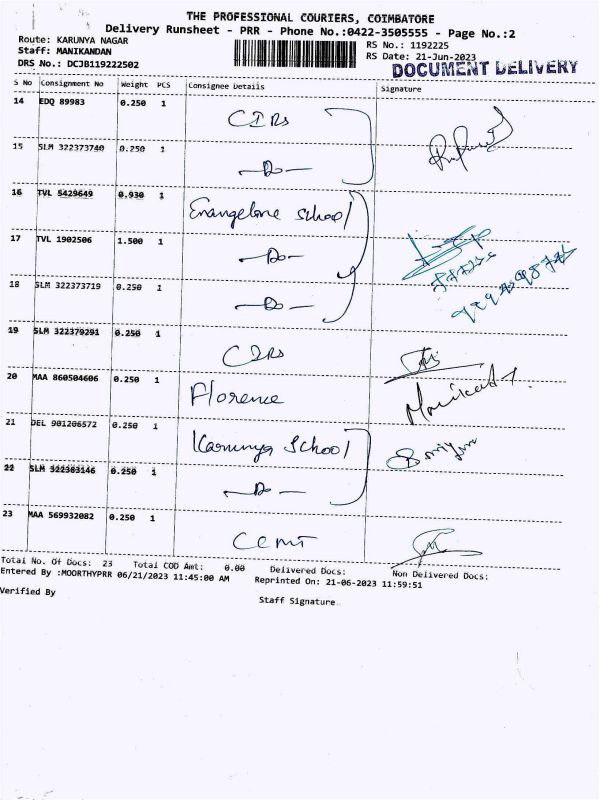 THE PROFESSIONAL COURIERS, COIMBATORE
Delivery Runsheet - PRR - Phone No.:0422-3505555 - Page No.:2
Route: KARUNYA NAGAR
RS No.: 1192225
Staff: MANIKANDAN
RS Date: 21-Jun-2023
DRS No.: DCJB119222502
DOCUMENT DELIVERY
S No Consignment No Weight PCS Consignee Details Signature
14 EDQ 89983 0.250 1
15 SLM 322373740 0.250 1 -Do-
16 TVL 5429649 0.930 1 School
17 TVL 1902506 1.500 1 -Do-
18 SLM 322373719 0.250 1 -Do-
19 SLM 322379291 0.250 1
20 MAA 860504606 0.250 1 Florence
21 DEL 901206572 0.250 1 Karunya School
22 SLM 322383146 0.250 1 -Do-
23 MAA 569932082 0.250 1
Total No. Of Docs: 23 Total COD Amt: 0.00 Delivered Docs: Non Delivered Docs:
Entered By :MOORTHYPRR 06/21/2023 11:45:00 AM Reprinted On: 21-06-2023 11:59:51
Verified By Staff Signature